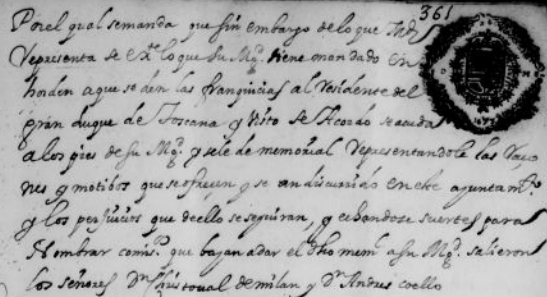 361
Por el qual semanda que sin embargo de lo que
Representa se exte lo que Su Mgd. tiene mandado en
horden a que se den las franquicias al Residente del
gran duque de Toscana y Visto se Acordo se acuda
a los pies de su Mgd. y sele de memorial Representandole las Raço
nes y motibos que se ofrecen y se an discurrido en este ayuntamto.
y los perjuicios que de ello se seguiran, y echandose suertes para
Nombrar comiss. que bajan a dar el dho meml a su Mgd. salieron
los señores Dn Christoual de milan y Dn Andres coello